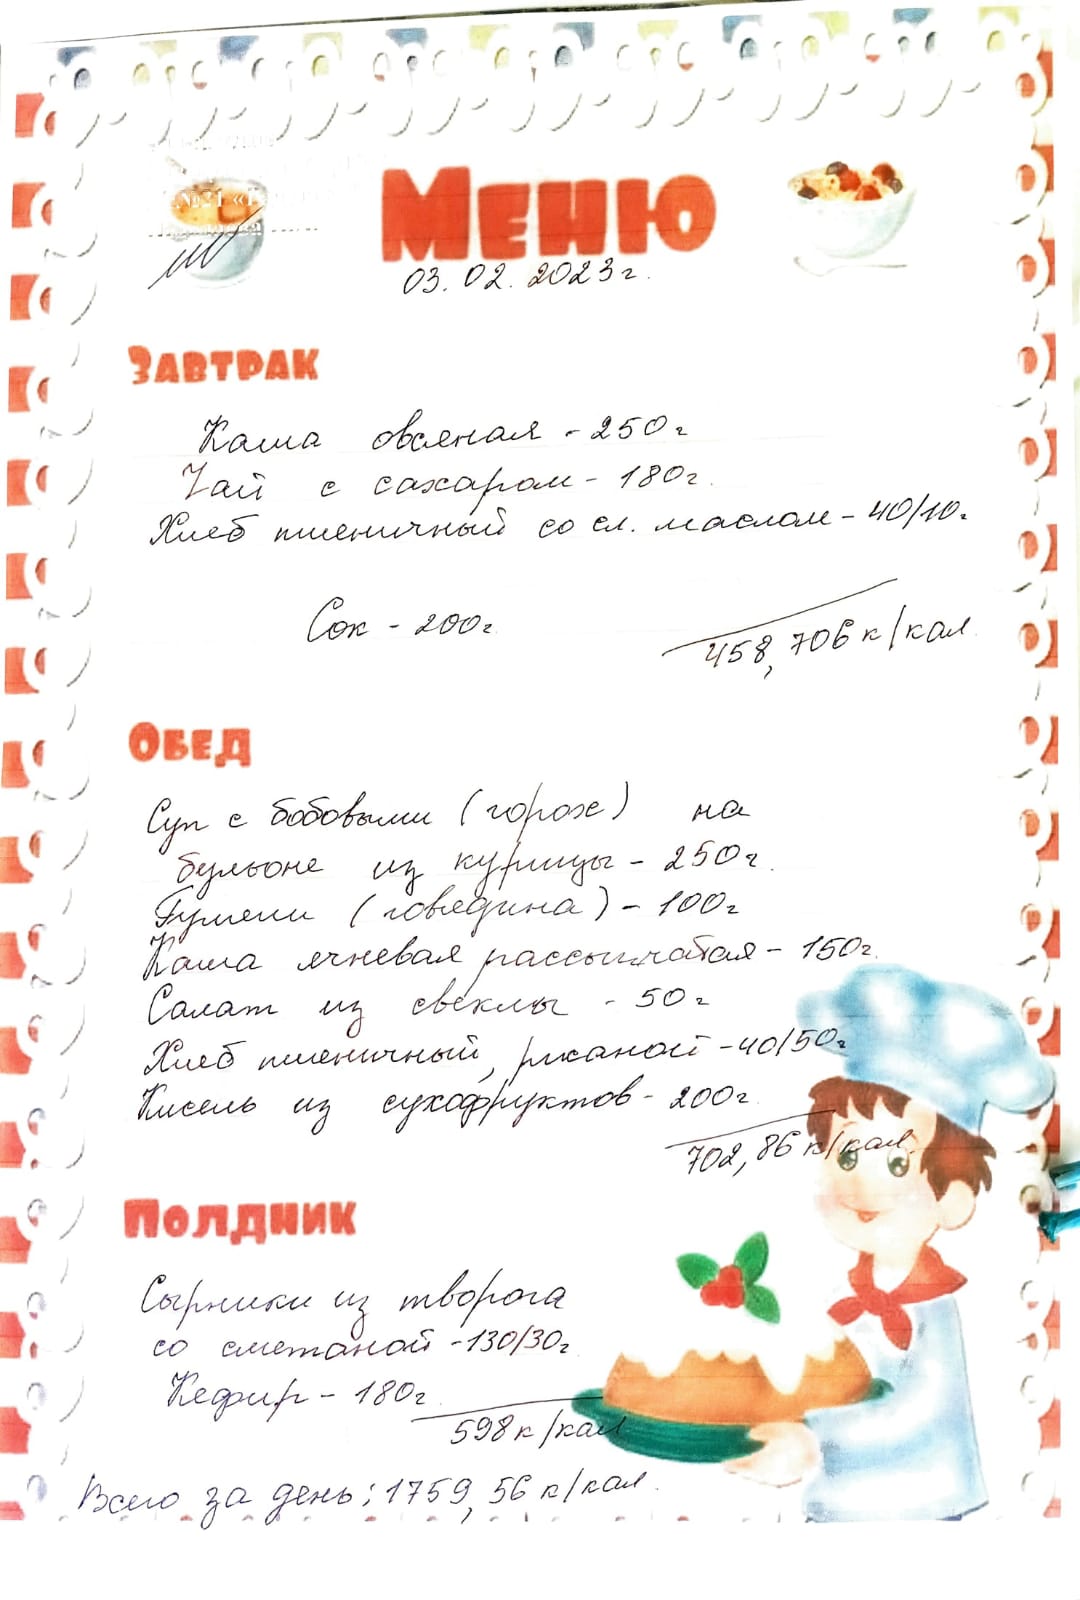 №21
Меню
03.02.2023г.
Завтрак
Каша овсяная - 250г
Чай с сахаром - 180г.
Хлеб пшеничный со сл. маслом - 40/10г
Сок - 200г
458,706 к/кал
Обед
Суп с бобовыми (горох) на
бульоне из курицы - 250г.
Гуляш (говядина) - 100г
Каша ячневая рассыпчатая - 150г.
Салат из свеклы - 50г
Хлеб пшеничный, ржаной - 40/50г
Кисель из сухофруктов - 200г
702,86 к/кал.
Полдник
Сырники из творога
со сметаной - 130/30г
Кефир - 180г
598 к/кал
Всего за день: 1759,56 к/кал.